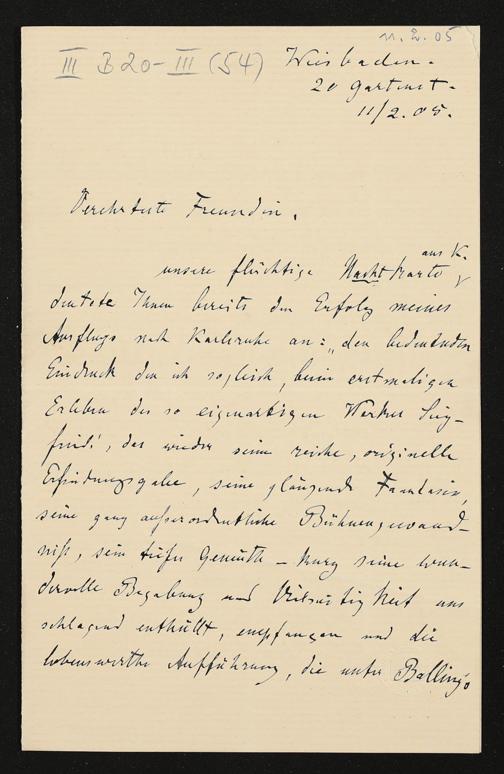 11.2.05
III B20-III (54)
Wiesbaden.
20 Gartenst.
11/2.05.
Verehrteste Freundin,
aus K.
unsere flüchtige Nachtkarte
deutete Ihnen bereits den Erfolg meines
Ausflugs nach Karlsruhe an: „den bedeutenden
Eindruck den ich sogleich, beim erstmaligen
Erleben des so eigenartigen Werkes Sieg-
frieds', das wieder seine reiche, originelle
Erfindungsgabe, seine glänzende Fantasie,
seine ganz außerordentliche Bühnengewand-
niß, sein tiefes Gemüth – kurz seine wun-
dervolle Begabung und Vielseitigkeit uns
schlagend enthüllt, empfangen und die
lobenswerthe Aufführung, die unter Balling's